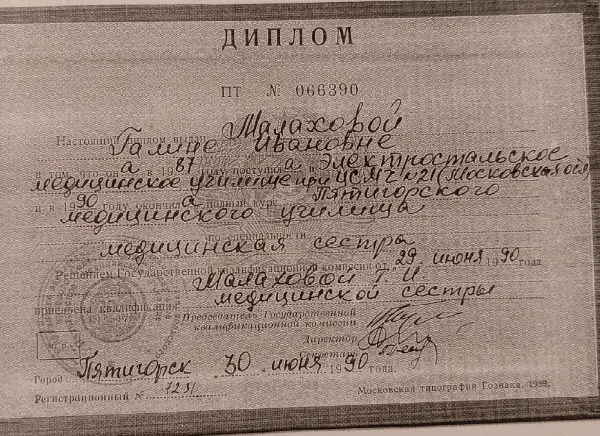 ДИПЛОМ
ПТ № 066390
Настоящий диплом выдан Малаховой
Галине Ивановне
в том, что он а в 19 87 году поступил а в Электростальское
медицинское училище при ЦМСЧ №21 (Московская обл)
и в 19 90 окончил а полный курс Пятигорского
медицинского училища
по специальности
медицинская сестра
Решением Государственной квалификационной комиссии от „29" июня 19 90 года
Малаховой Г. И.
присвоена квалификация медицинской сестры
Председатель Государственной
квалификационной комиссии
Директор
Секретарь
Город Пятигорск 30 июня 19 90 года.
Регистрационный № 7231
Московская типография Гознака. 1989.